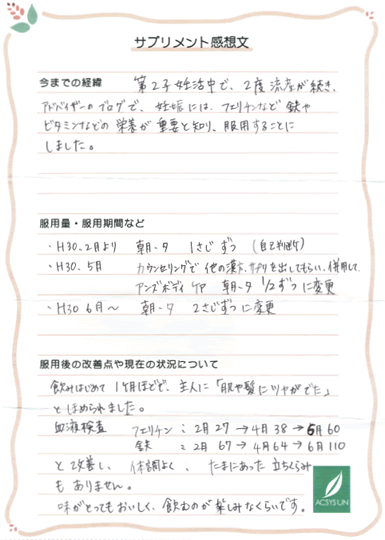 サプリメント感想文
今までの経緯　第2子妊活中で、2度流産が続き、
アドバイザーのブログで、妊娠には、フェリチンなど鉄や
ビタミンなどの栄養が重要と知り、服用することに
しました。
服用量・服用期間など
・H30.2月より　朝・夕　1さじずつ（自己判断）
・H30.5月　カウンセリングで他の漢方、サプリを出してもらい、併用して
アンズボディケア　朝・夕　1/2ずつに変更
・H30 6月〜　朝・夕　2さじずつに変更
服用後の改善点や現在の状況について
飲みはじめて1ヶ月ほどで、主人に「肌や髪にツヤがでた」
とほめられました。
血液検査　フェリチン：2月 27 → 4月 38 → 6月 60
鉄　：2月 67 → 4月 64 → 6月 110
と改善し、体調よく、たまにあった立ちくらみ
もありません。
味がとってもおいしく、飲むのが楽しみなくらいです。
ACSYS UN